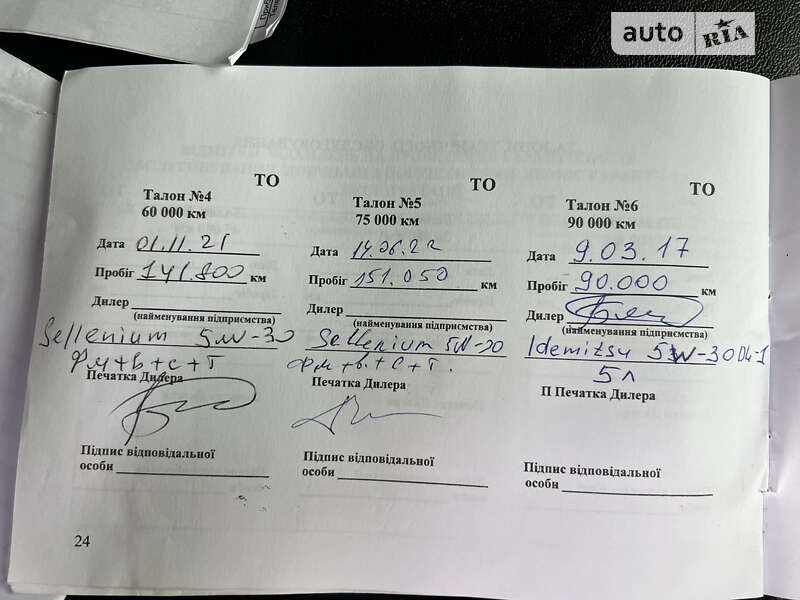 auto RIA
ТО
Талон №4
60 000 км
Дата 01.11.21
Пробіг 141.800 км
Дилер
(найменування підприємства)
Sellenium 5W-30
Фм+в+с+т
Печатка Дилера
Підпис відповідальної
особи
24
ТО
Талон №5
75 000 км
Дата 14.06.22
Пробіг 151.050 км
Дилер
(найменування підприємства)
Sellenium 5W-30
Фм+в.+с+т.
Печатка Дилера
Підпис відповідальної
особи
ТО
Талон №6
90 000 км
Дата 9.03.17
Пробіг 90.000 км
Дилер
(найменування підприємства)
Idemitsu 5W-30 D4-1
5л
П Печатка Дилера
Підпис відповідальної
особи